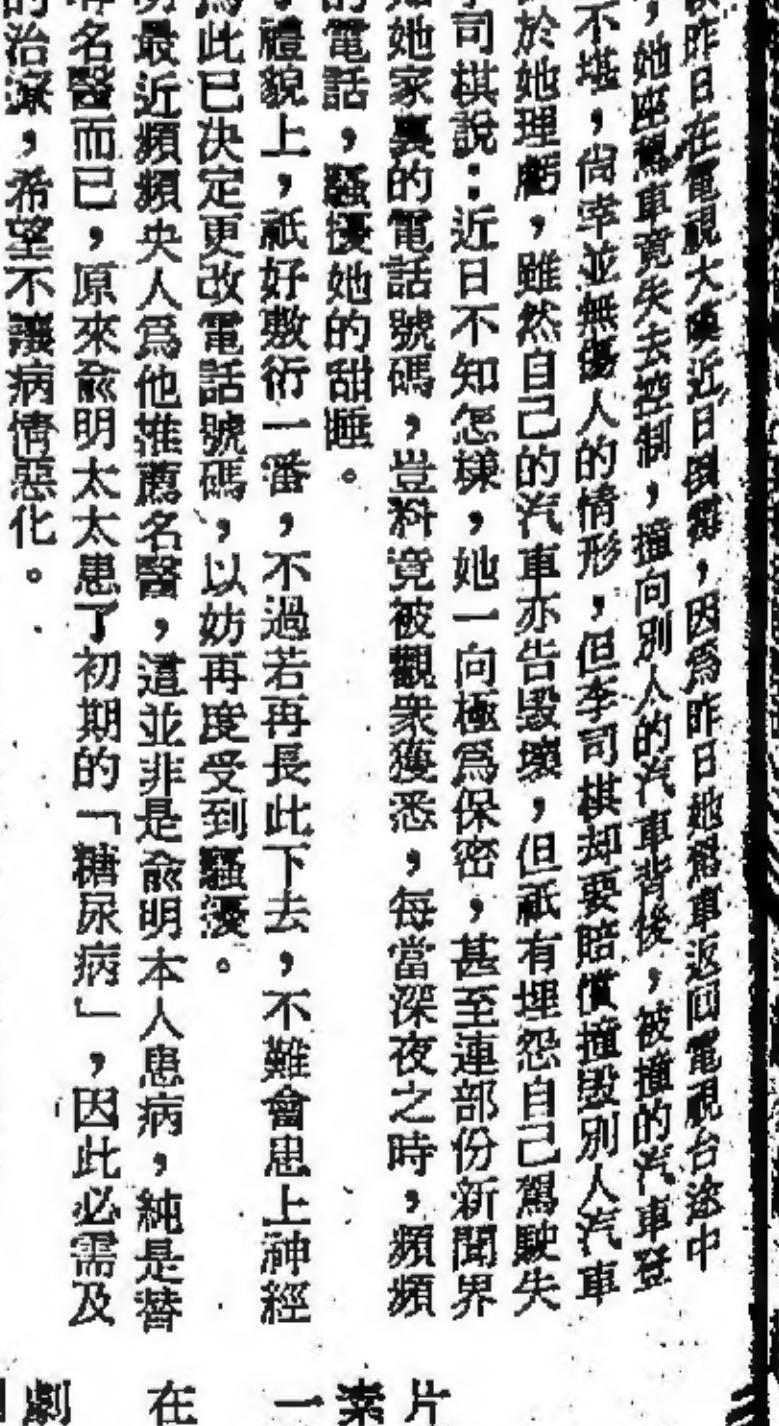 昨日在電視大嘆近日頭霉，因爲昨日她駕車返回電視台途中
，她座駕車竟失去控制，撞向別人的汽車背後，被撞的汽車登
不堪，尙幸並無傷人的情形，但李司棋却要賠償撞毀別人汽車
於她理虧，雖然自己的汽車亦告毀壞，但祇有埋怨自己駕駛失
司棋說：近日不知怎樣，她一向極爲保密，甚至連部份新聞界
她家裏的電話號碼，豈料竟被觀衆獲悉，每當深夜之時，頻頻
的電話，騷擾她的甜睡。
禮貌上，祇好敷衍一番，不過若再長此下去，不難會患上神經
爲此已決定更改電話號碼，以妨再度受到騷擾。
明最近頻頻央人爲他推薦名醫，這並非是俞明本人患病，純是替
名醫而已，原來俞明太太患了初期的「糖尿病」，因此必需及
的治療，希望不讓病情惡化。
片
素
一
在
劇